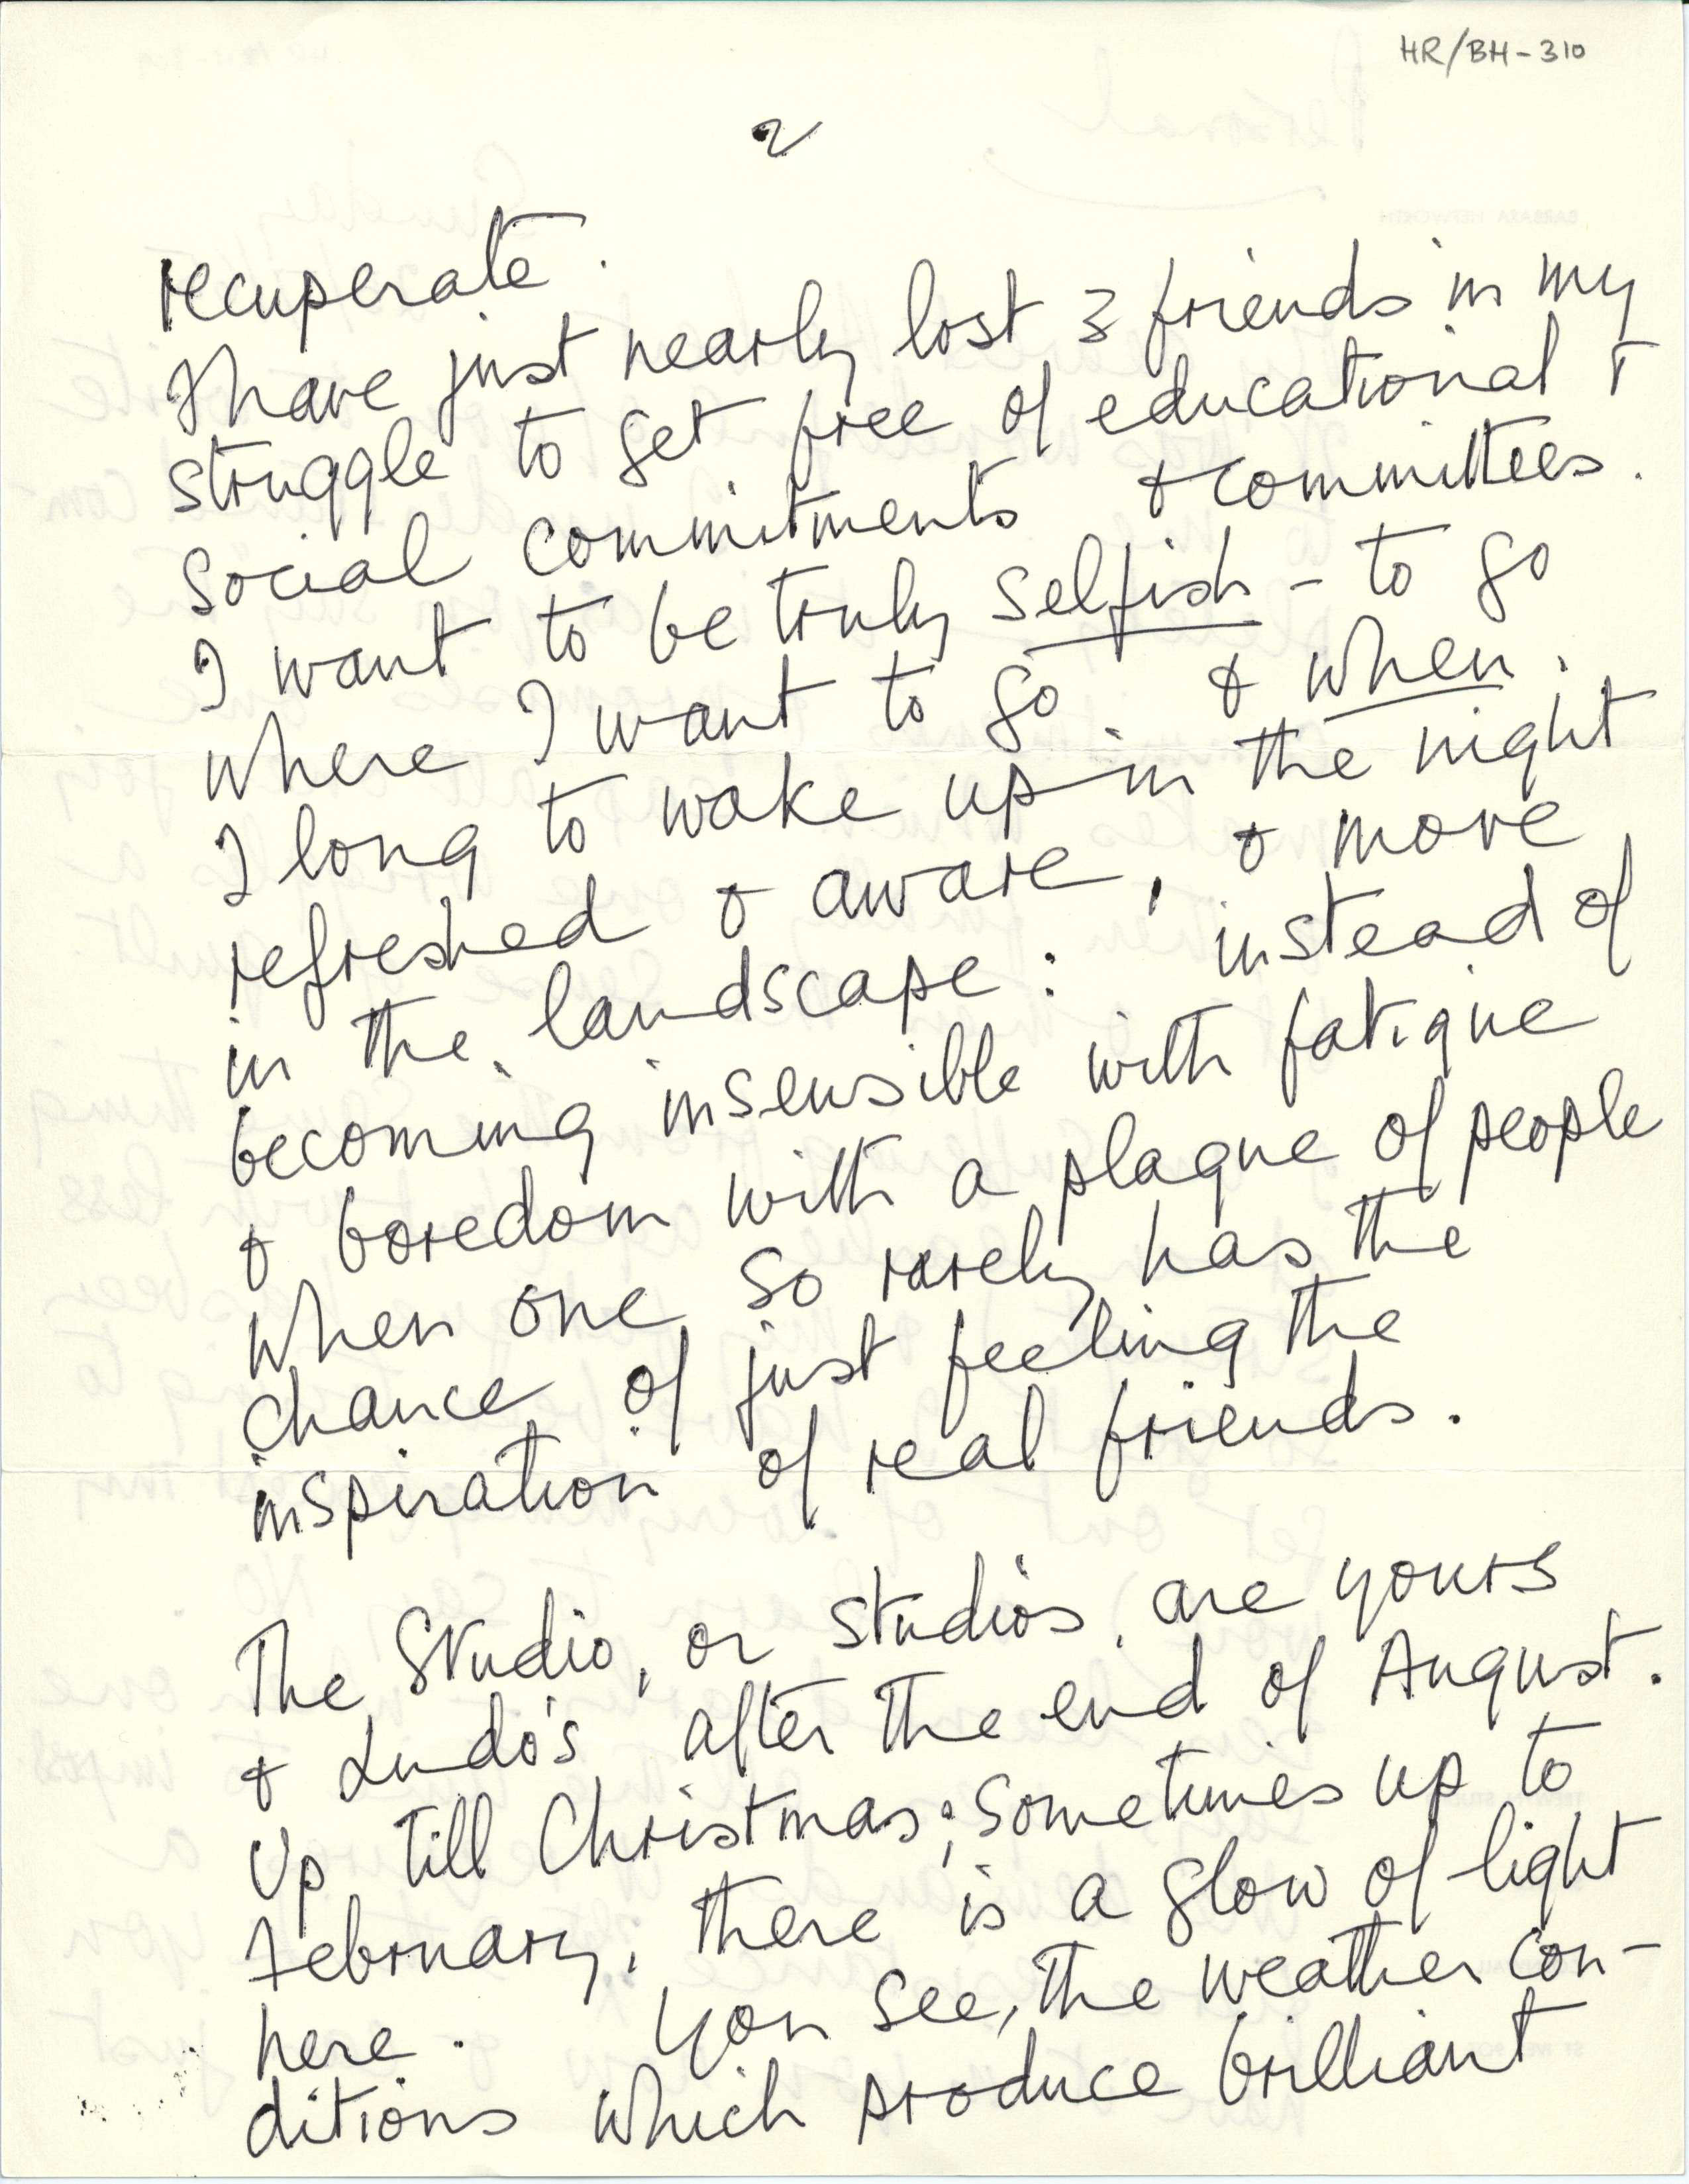 HR/BH-310
2
recuperate.
I have just nearly lost 3 friends in my
struggle to get free of educational +
social commitments + committees.
I want to be truly selfish - to go
where I want to go & when.
I long to wake up in the night
refreshed & aware, & move
in the landscape: instead of
becoming insensible with fatigue
& boredom with a plague of people
when one so rarely has the
chance of just feeling the
inspiration of real friends.
The Studio, or studios, are yours
& Ludo's after the end of August.
Up till Christmas; sometimes up to
February, there is a glow of light
here. You see, the weather con-
ditions which produce brilliant